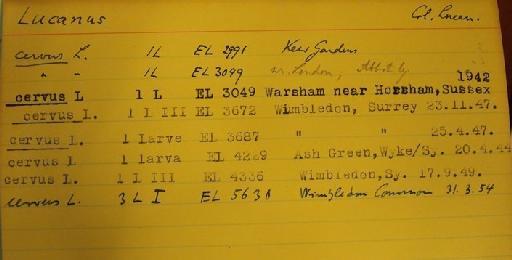 Lucanus Col. Lucan.
cervus L. 1L EL 2991 Kew Gardens
" " 1L EL 3099 nr. London,
1942
cervus L 1 L EL 3049 Warsham near Horsham, Sussex
cervus L. 1 L III EL 3672 Wimbledon, Surrey 23.11.47.
cervus L. 1 larve EL 3687 " " 25.4.47.
cervus L 1 larva EL 4229 Ash Green,Wyke/Sy. 20.4.44
cervus L. 1 L III EL 4336 Wimbledon,Sy. 17.9.49.
cervus L. 3 L I EL 5631 Wimbledon Common 31.3.54